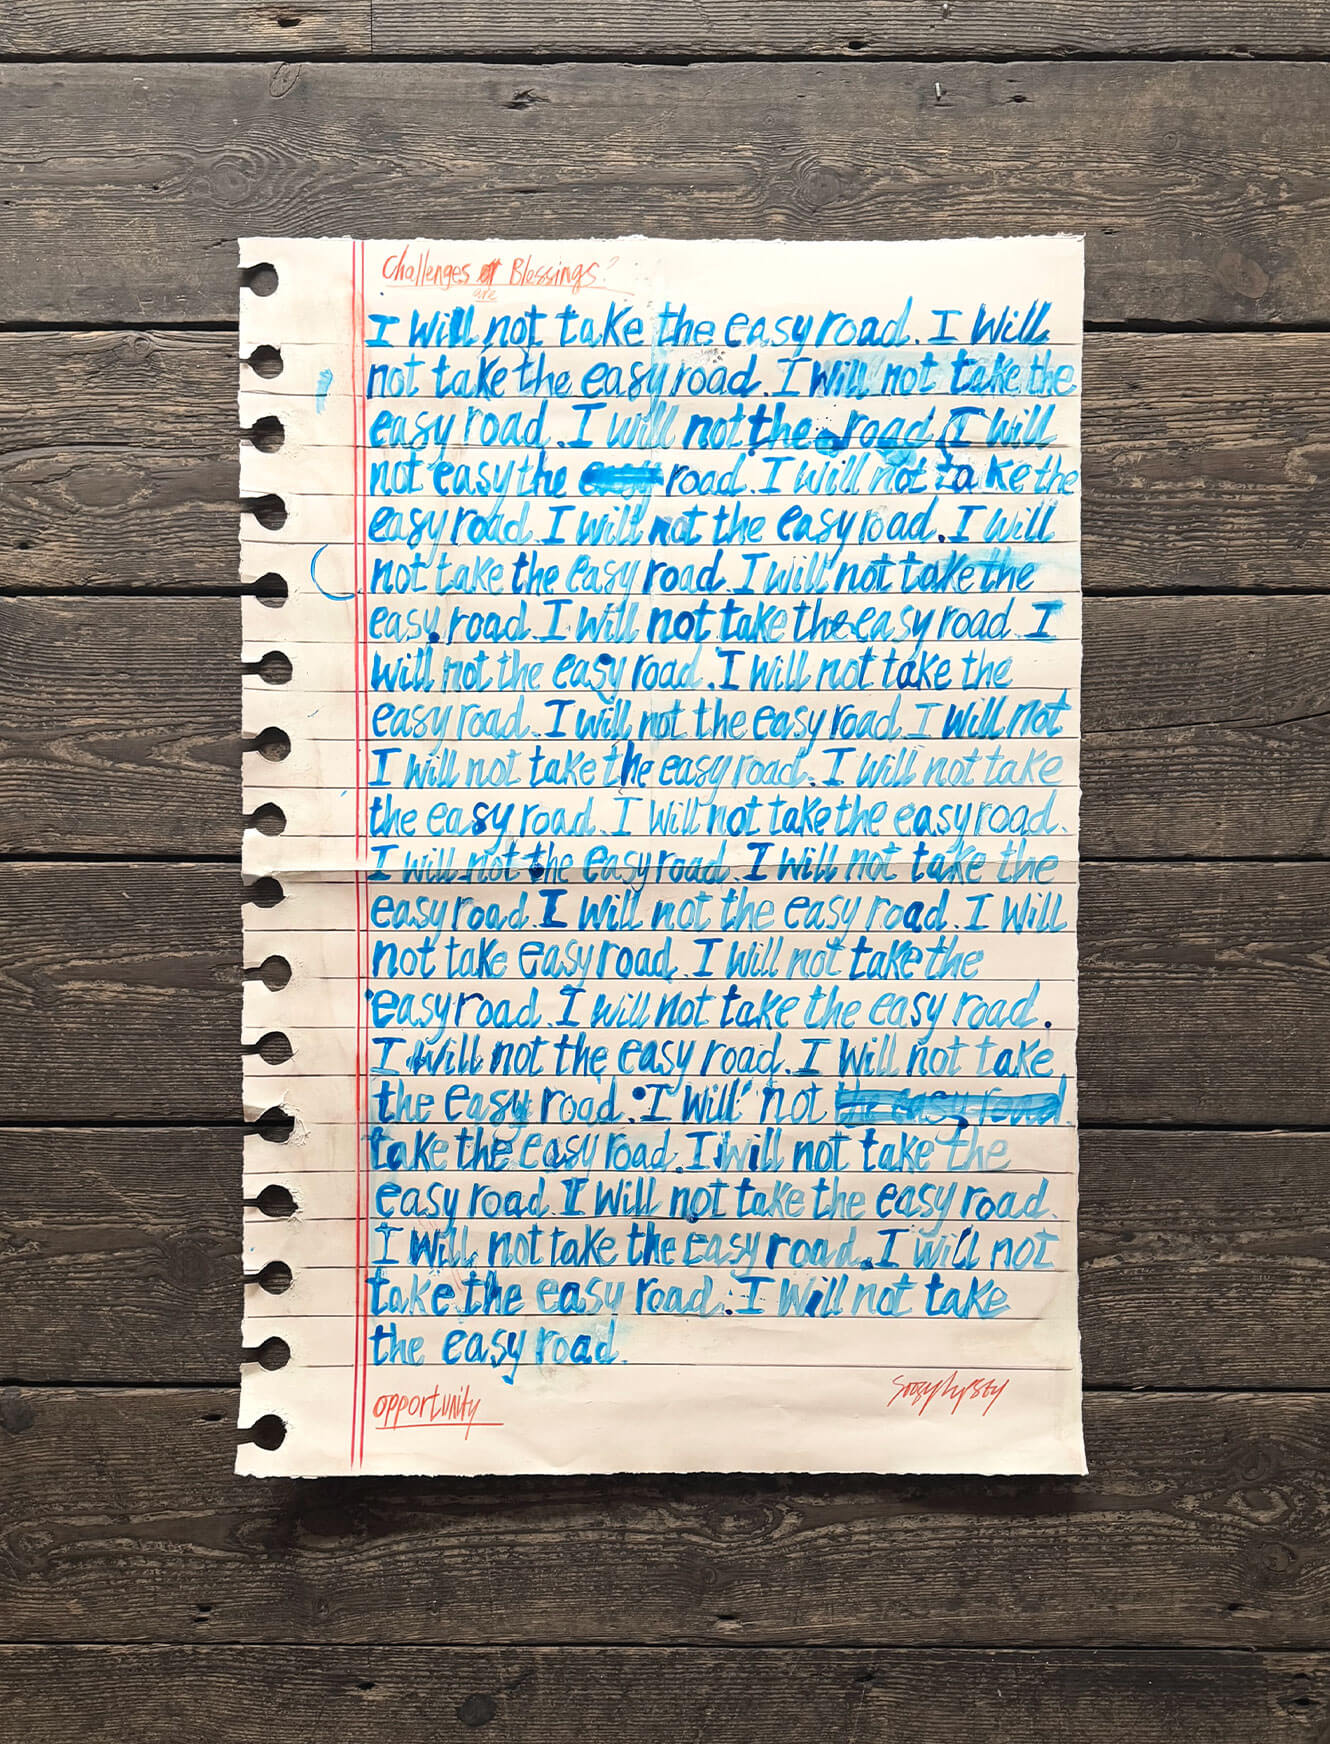 Challenges are Blessings?
I will not take the easy road. I will
not take the easy road. I will not take the
easy road. I will not the road I will
not easy the easy road. I will not take the
easy road. I will not the easy road. I will
not take the easy road. I will not take the
easy road. I will not take the easy road. I
will not the easy road. I will not take the
easy road. I will not the easy road. I will not
I will not take the easy road. I will not take
the easy road. I will not take the easy road.
I will not the easy road. I will not take the
easy road. I will not the easy road. I will
not take easy road. I will not take the
easy road. I will not take the easy road.
I will not the easy road. I will not take
the easy road. I will not the easy road.
take the easy road. I will not take the
easy road. I will not take the easy road.
I will not take the easy road. I will not
take the easy road. I will not take
the easy road.
opportunity